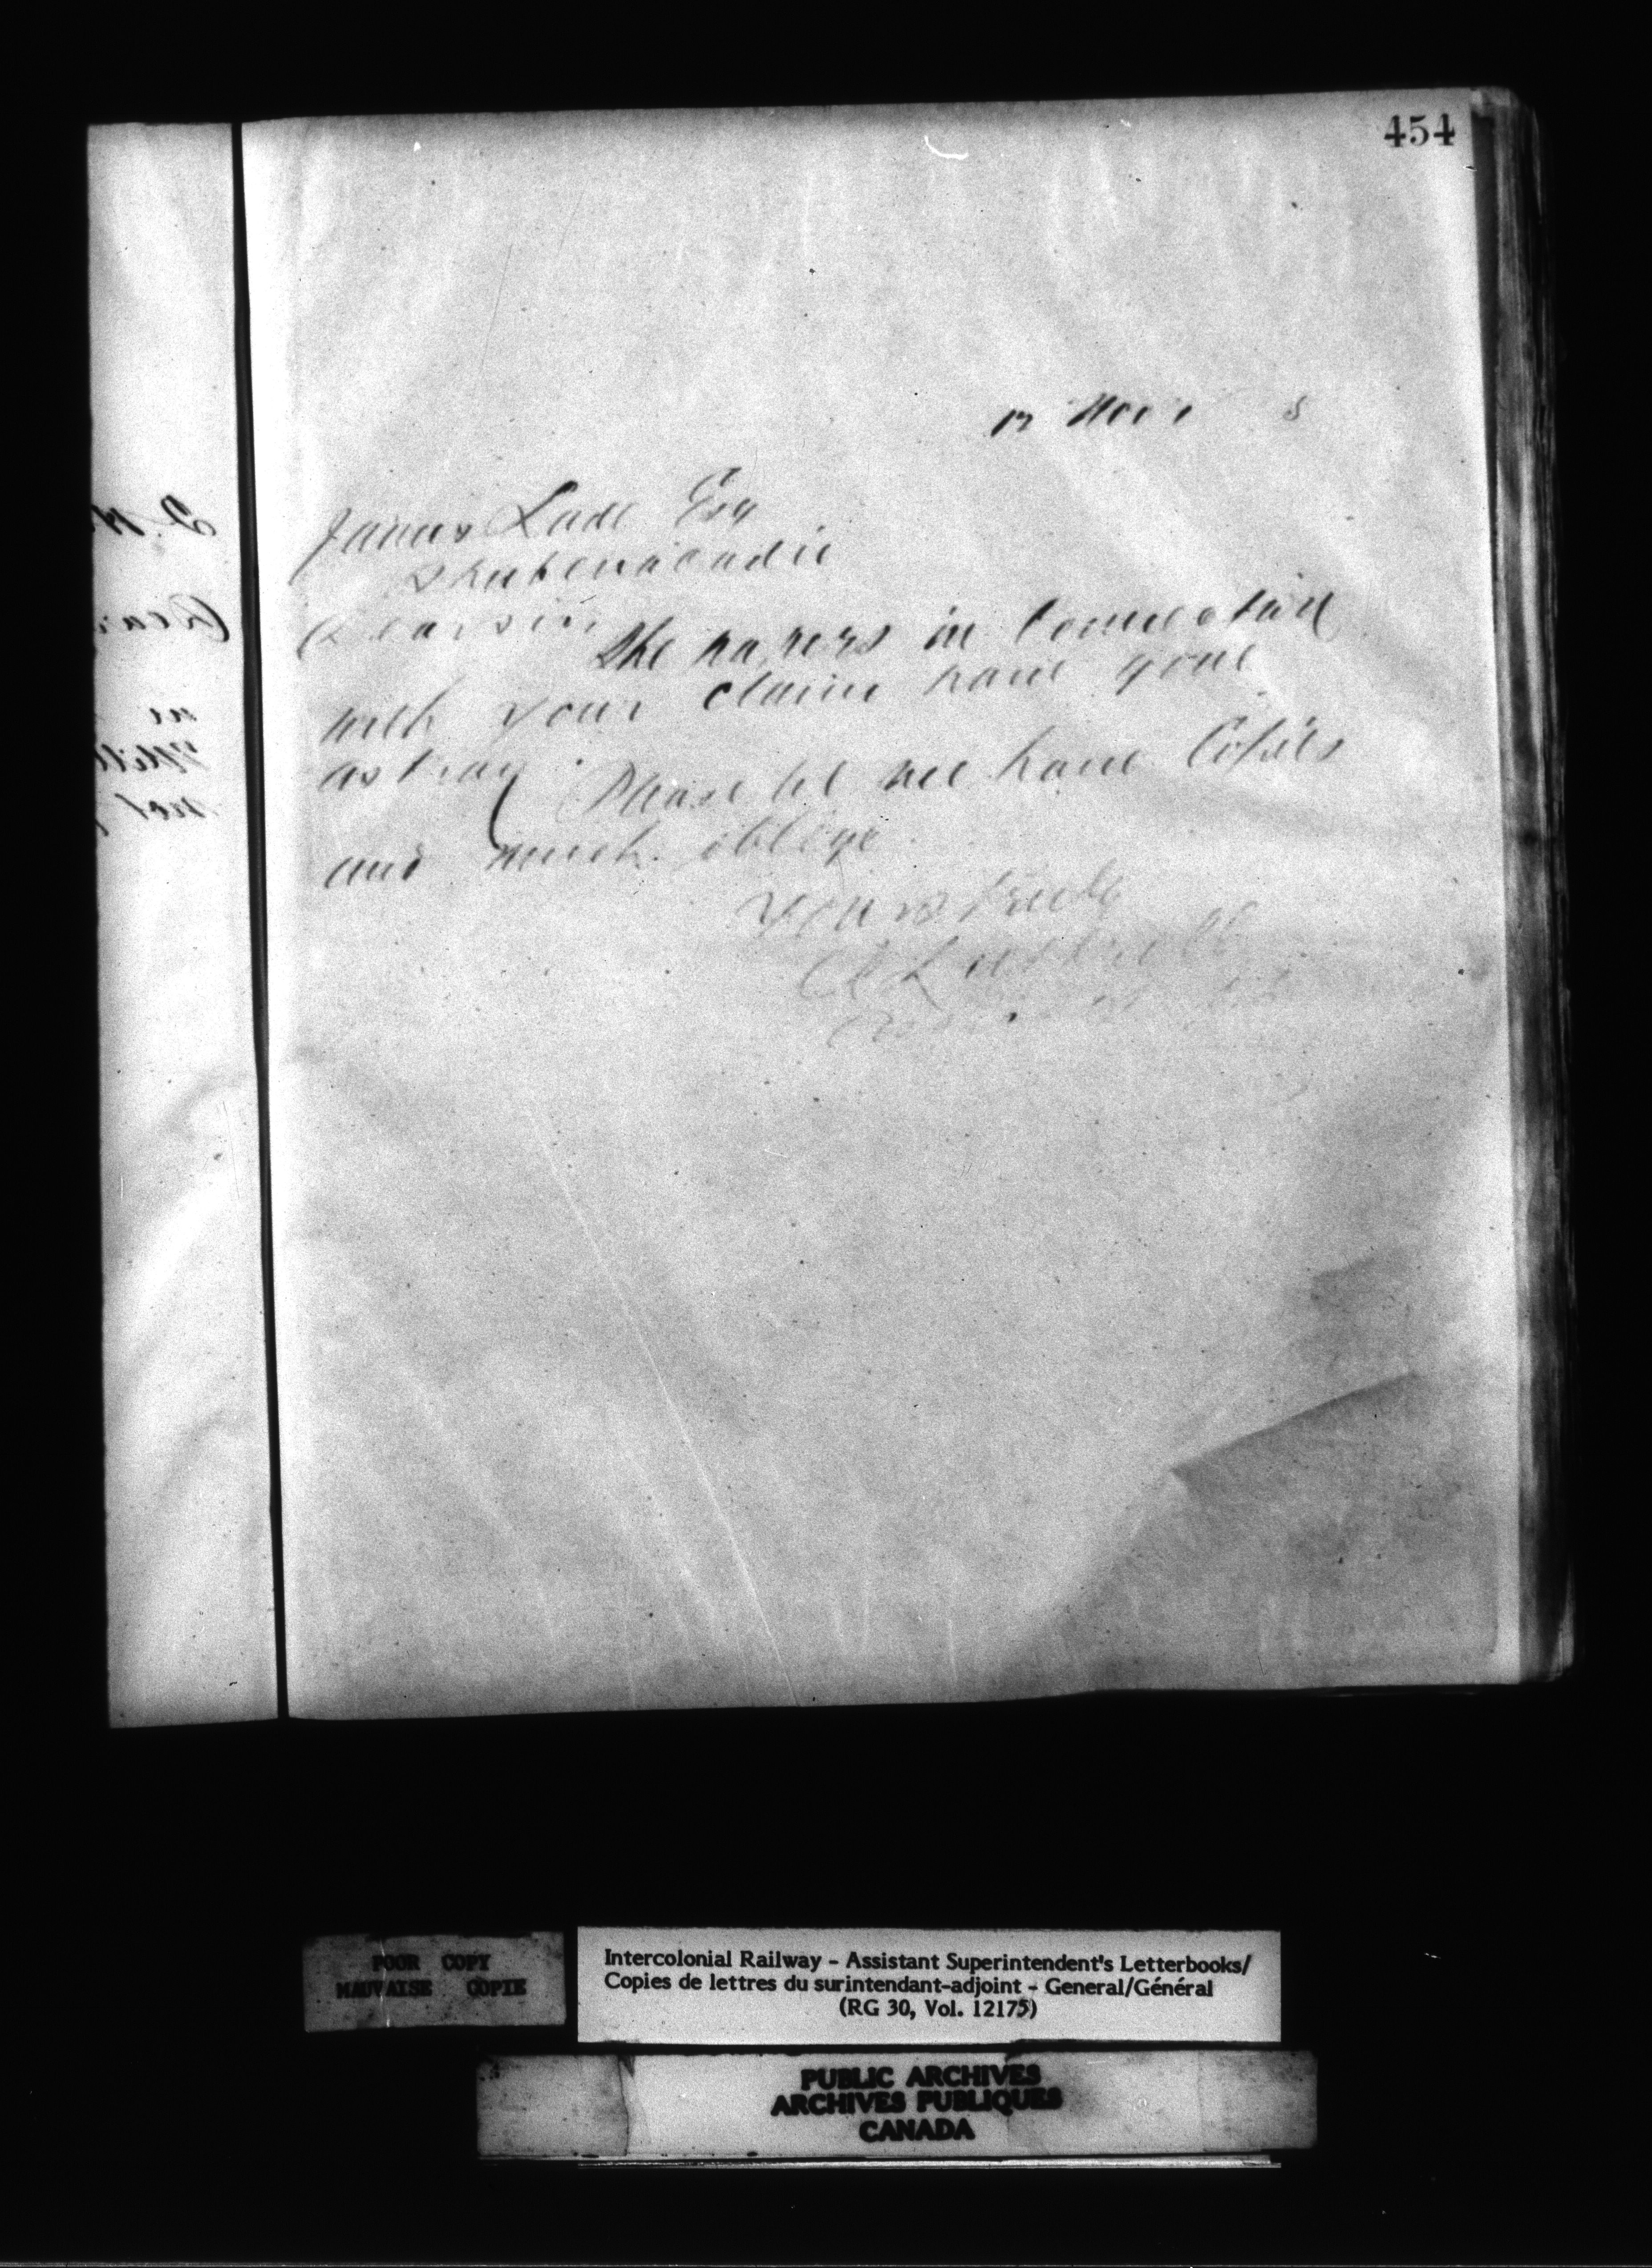 454
Nov
James Esq
Shubenacadie
Dear Sir
The papers in Connection
with your claim have gone
astray. Please let me have Copies
and much oblige
Yours truly
POOR COPY
MAUVAISE COPIE
Intercolonial Railway - Assistant Superintendent's Letterbooks/
Copies de lettres du surintendant-adjoint - General/Général
(RG 30, Vol. 12175)
PUBLIC ARCHIVES
ARCHIVES PUBLIQUES
CANADA